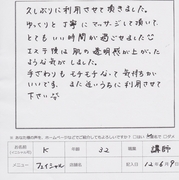 久しぶりに利用させて頂きました。
ゆっくりと丁寧にマッサージして頂いて、
とてもいい時間が過ごせました😊
エステ後は肌の透明感が上がった
ような気がしました。
手ざわりもモチモチして気持ちが
いいです。また近いうちに利用させて
下さい
お名前 K 年齢 32 職業 講師
メニュー フェイシャル 店舗名 記入日 12年6月9日